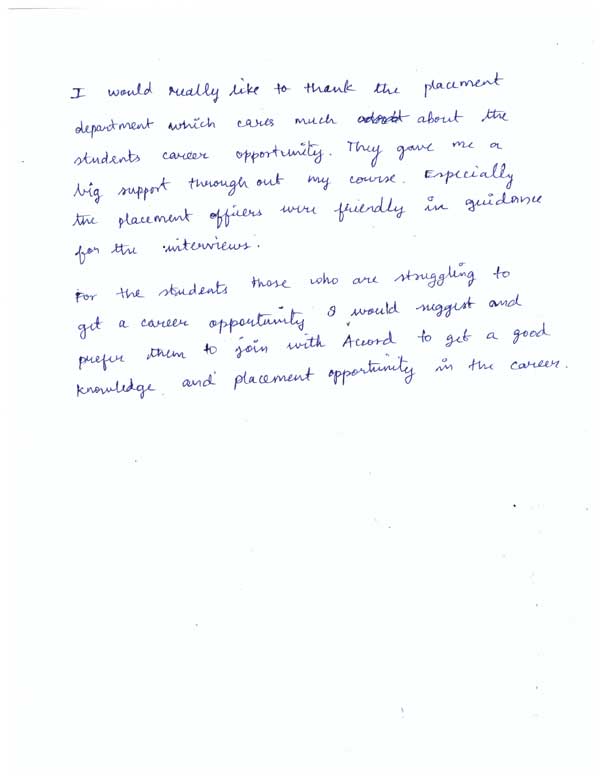 I would really like to thank the placement
department which cares much about the
students career opportunity. They gave me a
big support through out my course. Especially
the placement officers were friendly in guidance
for the interviews.
For the students those who are struggling to
get a career opportunity I would suggest and
prefer them to join with Accord to get a good
knowledge and placement opportunity in the career.